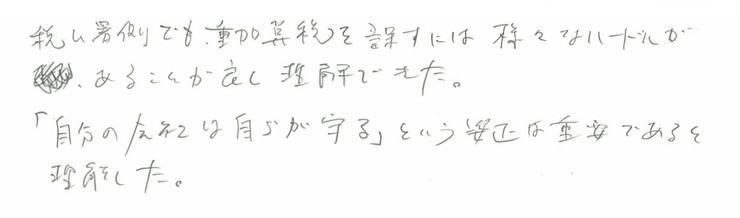 税ム署側でも重加算税を課すには様々なハードルが
、あることが良く理解できた。
「自分の会社は自らが守る」という姿正は重要であると
理解した。